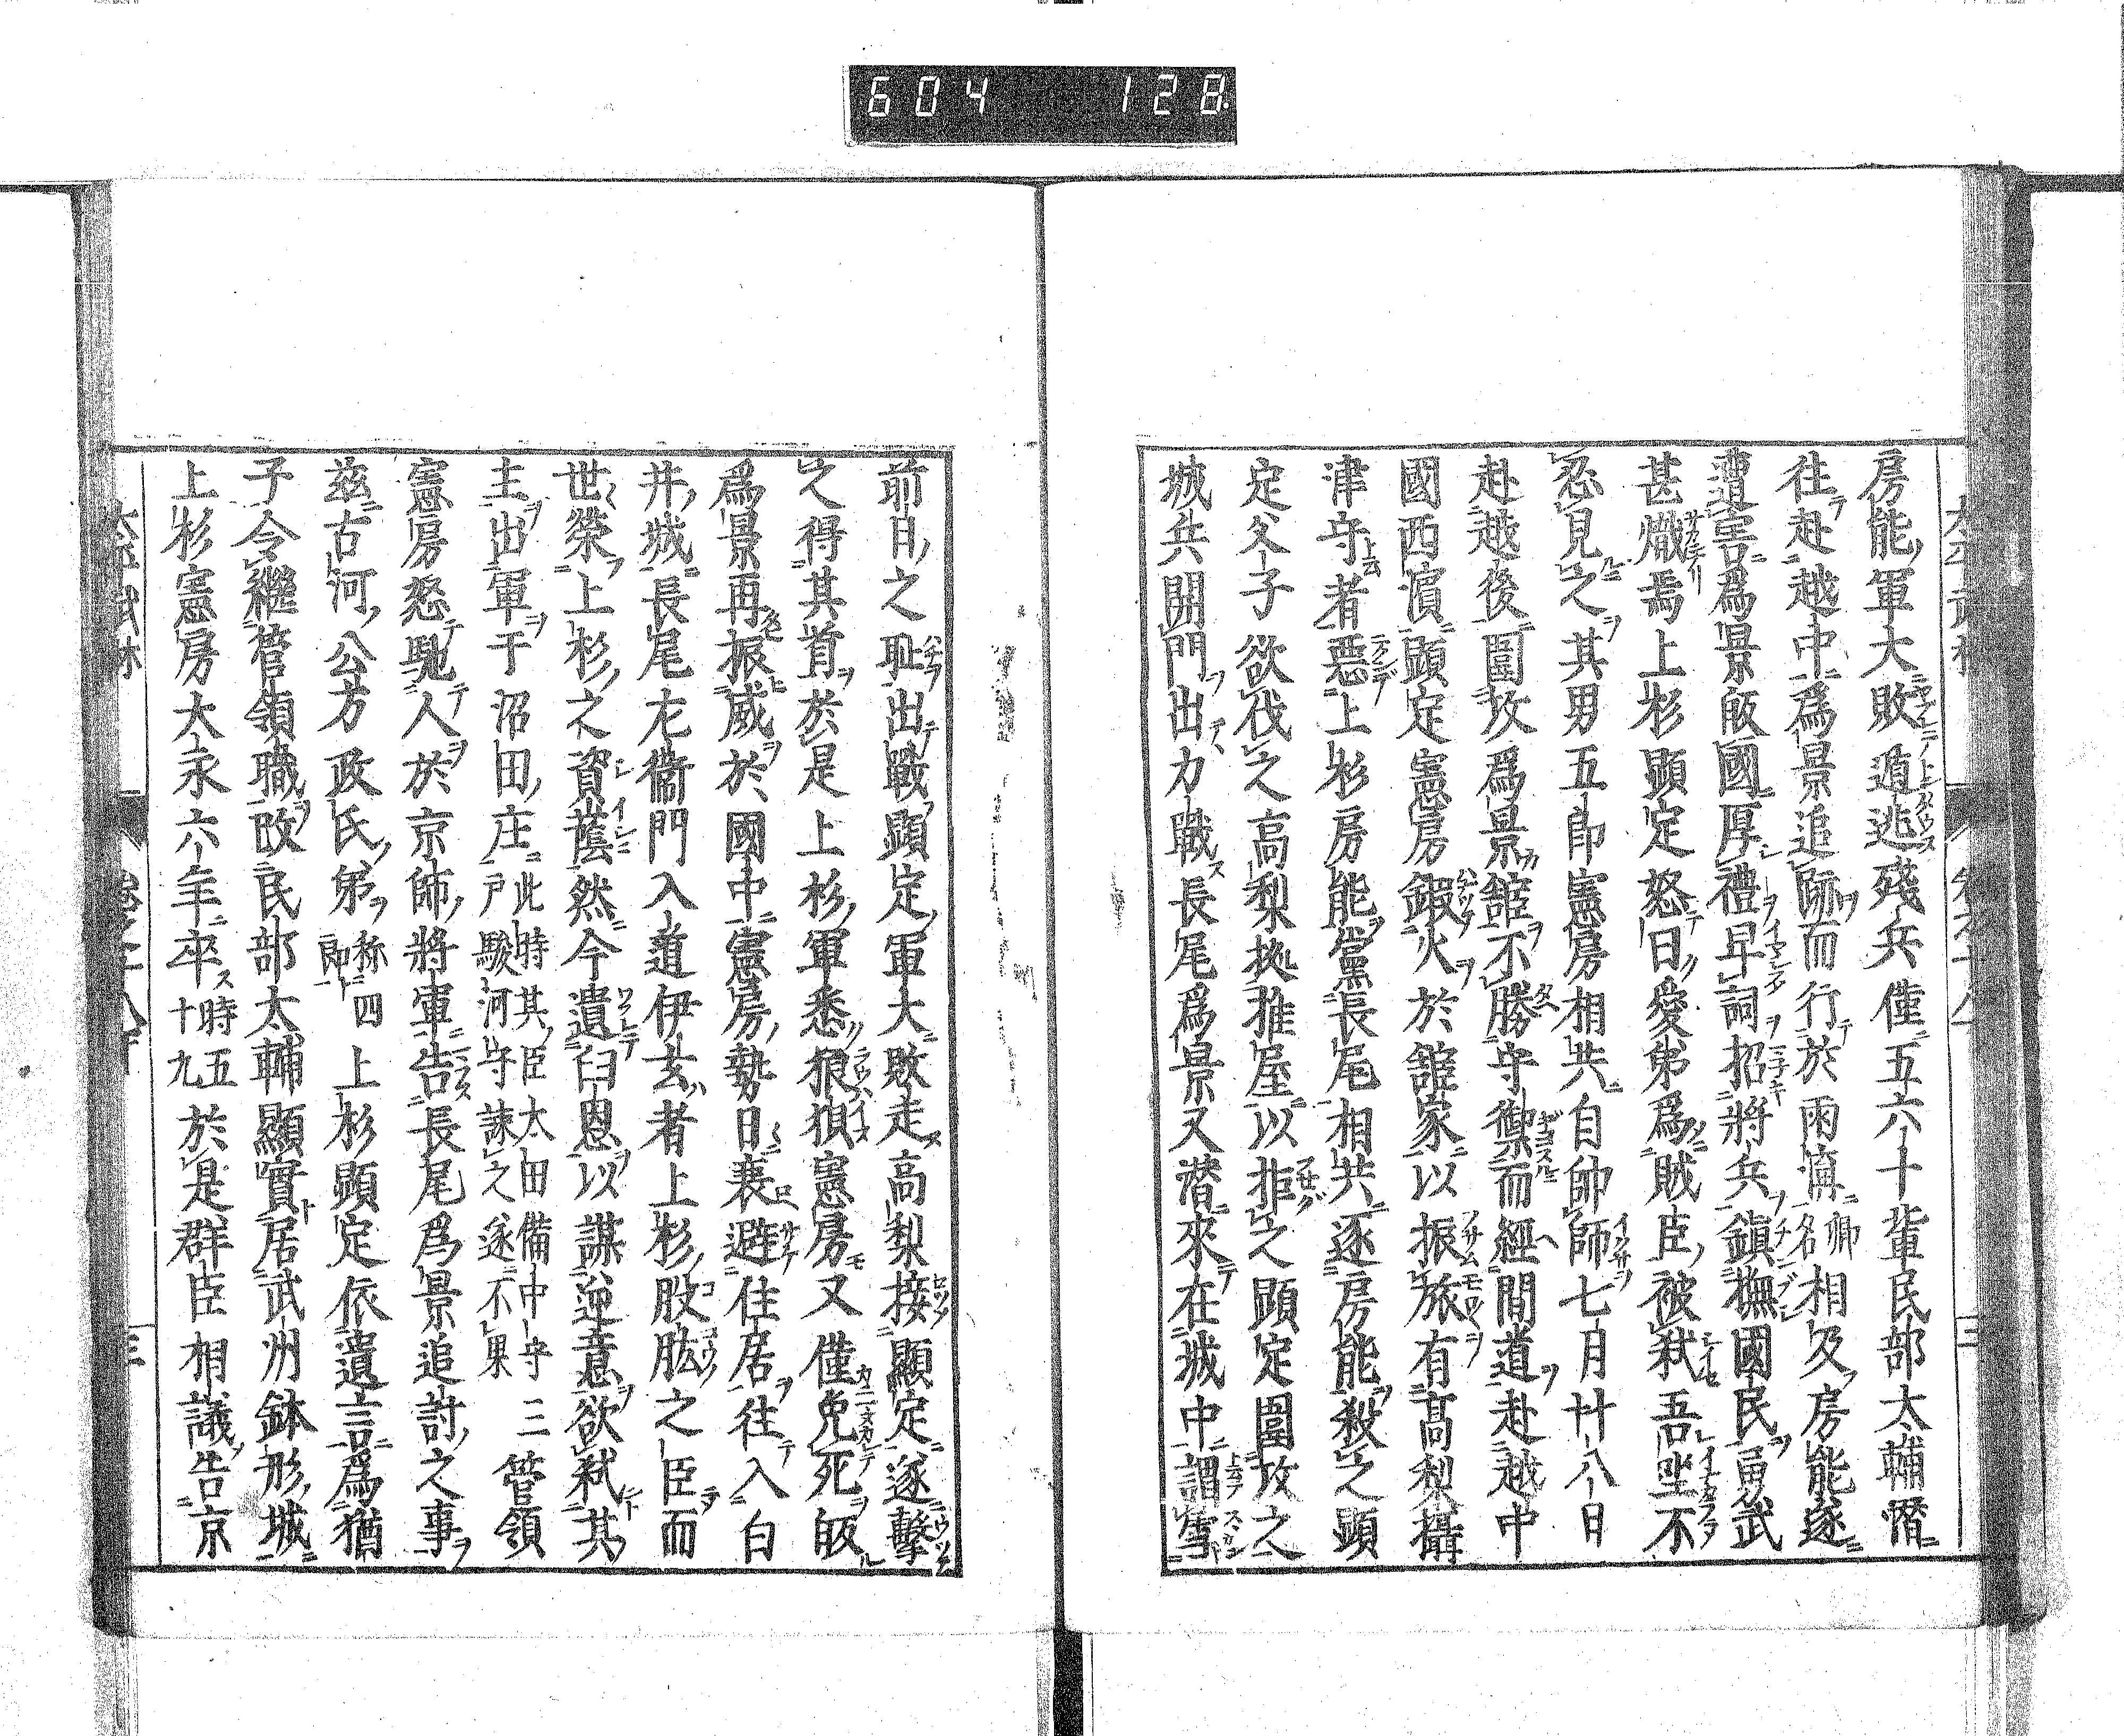 604 128
房能軍大敗遁逃殘兵僅五六十輩民部太輔潛
往赴越中爲景追跡而行於雨溝郷名相及房能遂
遭害爲景皈國厚禮卑詞招將兵鎮撫國民勇武
甚熾焉上杉顯定怒曰愛弟爲賊臣被弑吾坐不
忍見之其男五郎憲房相共自帥師七月廿八日
赴越後圍攻爲景舘不勝守禦而經間道赴越中
國西濵顯定憲房鍜火於舘家以振旅有髙梨攝
津守者惡上杉房能黨長尾相共逐房能殺之顯
定父子欲伐之高梨拠推屋以拒之顯定圍攻之
城兵開門出力戰長尾爲景又潜來在城中謂雪
前日之耻出戰顯定軍大敗走高梨接顯定遂擊
之得其首於是上杉軍悉狼狽憲房又僅免死皈
爲景再振威於國中憲房勢日衰避住居往入白
井城長尾左衞門入道伊玄者上杉股肱之臣而
世榮上杉之資蔭然今遺旧恩以謀逆意欲弑其
主出軍于沼田庄此時其臣太田備中守三管領
戸駿河守諌之遂不果
憲房怒馳人於京師將軍告長尾爲景追討之事
茲古河公方政氏弟称四郎上杉顯定依遺言爲猶
子令繼管領職改民部太輔顯實居武州鉢形城
上杉憲房大永六年卒時五十九於是群臣相議告京
三